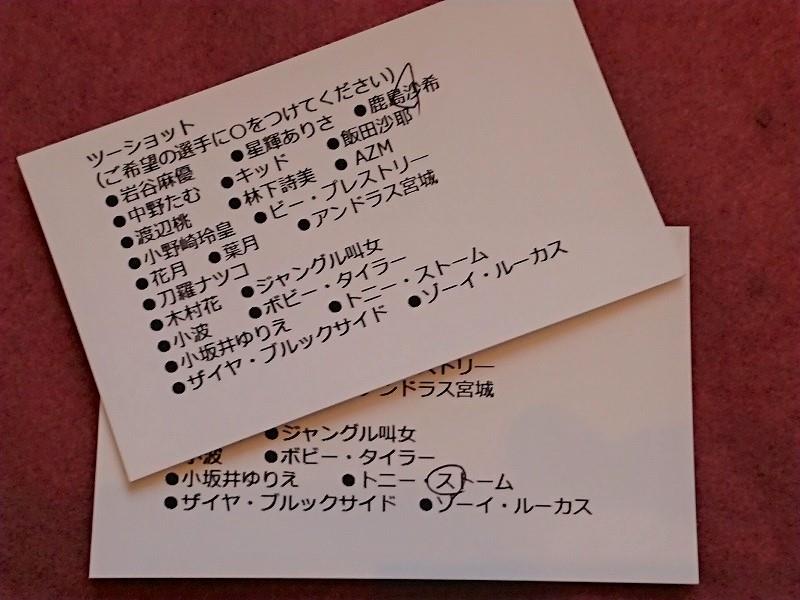 ツーショット
(ご希望の選手に○をつけてください)
●岩谷麻優 ●星輝ありさ ●鹿島沙希
●中野たむ ●キッド ●飯田沙耶
●渡辺桃 ●林下詩美 ●AZM
●小野崎玲皇 ●ビー・プレストリー
●花月 ●葉月 ●アンドラス宮城
●刀羅ナツコ
●木村花 ●ジャングル叫女
●小波 ●ボビー・タイラー
●小坂井ゆりえ ●トニー・ストーム
●ザイヤ・ブルックサイド ●ゾーイ・ルーカス
ストリー
アンドラス宮城
●ジャングル叫女
小波 ●ボビー・タイラー
●小坂井ゆりえ ●トニー・ストーム
●ザイヤ・ブルックサイド ●ゾーイ・ルーカス